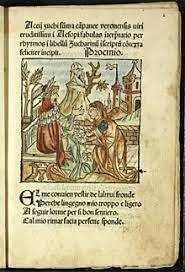 Accii zucchi summa cãpanee veronensis viri
eruditissimi ĩ Aesopi fabulas ĩterpretatio per
rhythmos ĩ libellũ Zucharinũ ĩscriptũ cõtexta
feliciter incipit. Proemio.
EL me convien vestir de l'altrui fronde
Perche lingegno mio troppo e ligero
A seguir lorme per si bon sentiero.
Cal mio rimar facia perfette sponde.